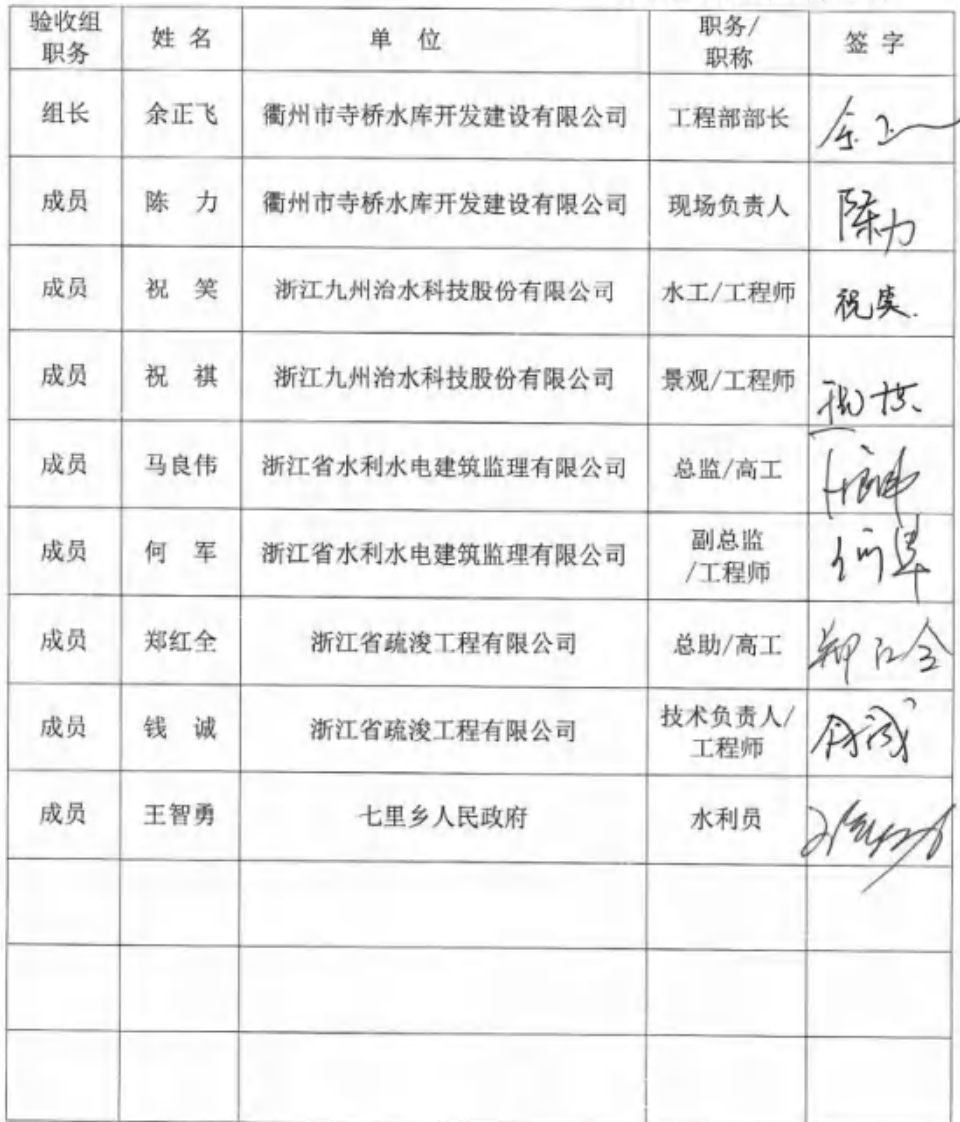 验收组职务 姓 名 单 位 职务/职称 签 字
组长 余正飞 衢州市寺桥水库开发建设有限公司 工程部部长
成员 陈 力 衢州市寺桥水库开发建设有限公司 现场负责人 陈力
成员 祝 笑 浙江九州治水科技股份有限公司 水工/工程师 祝笑
成员 祝 祺 浙江九州治水科技股份有限公司 景观/工程师 祝祺
成员 马良伟 浙江省水利水电建筑监理有限公司 总监/高工
成员 何 军 浙江省水利水电建筑监理有限公司 副总监/工程师 何军
成员 郑红全 浙江省疏浚工程有限公司 总助/高工 郑红全
成员 钱 诚 浙江省疏浚工程有限公司 技术负责人/工程师
成员 王智勇 七里乡人民政府 水利员